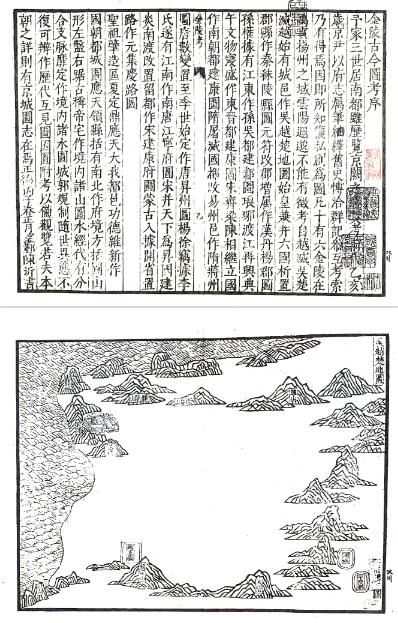 金陵古今圖考序
予家三世居南都雖歷覽京闕
歲京尹以府志屬筆紬繹舊史博洽群記參互考索
乃有得焉因即所知復私創為圖凡十有六金陵在
禹貢揚州之域雲陽遐邈不能有徵考自越滅吳楚
滅越始有城邑作吳越楚地圖始皇兼并六國析置
郡縣作秦秣陵縣圖元符改郡增屬作漢丹楊郡圖
孫權據有江東作孫吳都建鄴圖琅琊渡江再興典
午文物寖盛作東晉都建康圖宋齊梁陳相繼立國
作南朝都建康圖隋居滅國都改易州邑作隋蔣州
圖唐數變置至季世始定作唐昇州圖楊徐竊據李
氏遂有江南作南唐江寧府圖宋并天下為昇因建
炎南渡改置留都作宋建康府圖蒙古入據開省置
路作元集慶路圖
聖祖肇造區夏定鼎應天大我都邑功德維新作
國朝都城圖應天領縣括有南北作府境方括圖山
形左盤右踞古稱帝宅作境內諸山圖水經代有分
合支脈靡定作境內諸水圖城郭規制隨世異態不
復可辨作歷代互見圖因圖附考以備觀覽若夫本
朝之詳則有京城圖志在焉正德丙子春正月望鄞陳沂言
吳越楚地圖